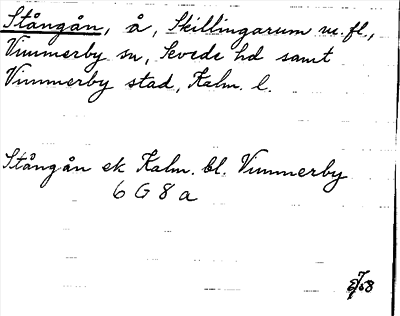 Stångån, å, Skillingarum m. fl.,
Vimmerby sn, Sevede hd samt
Vimmerby stad, Kalm. l.
Stångån ek Kalm. bl. Vimmerby
6 G 8 a